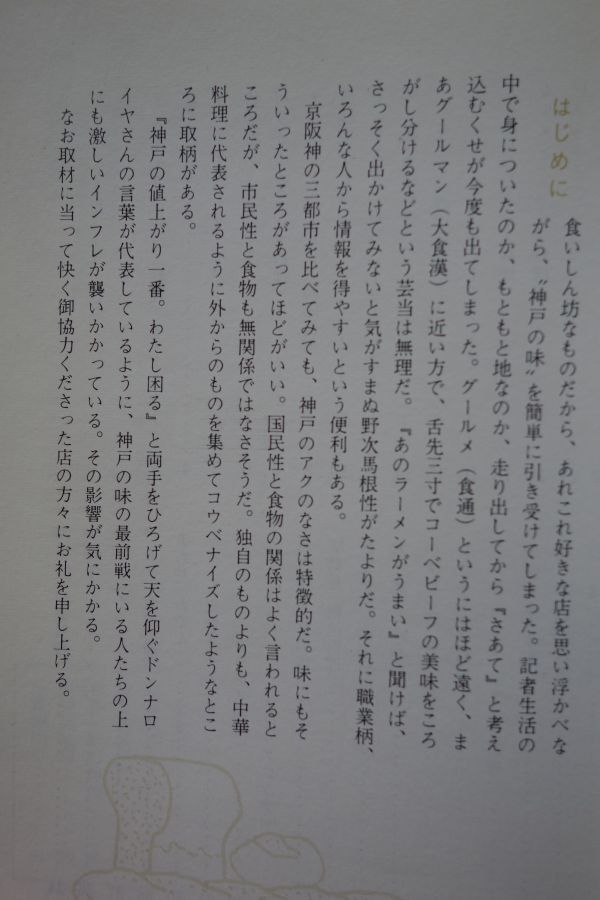 はじめに
食いしん坊なものだから、あれこれ好きな店を思い浮かべな
がら、〝神戸の味〟を簡単に引き受けてしまった。記者生活の
中で身についたのか、もともと地なのか、走り出してから『さあて』と考え
込むくせが今度も出てしまった。グールメ（食通）というにはほど遠く、ま
あグールマン（大食漢）に近い方で、舌先三寸でコーベビーフの美味をころ
がし分けるなどという芸当は無理だ。『あのラーメンがうまい』と聞けば、
さっそく出かけてみないと気がすまぬ野次馬根性がたよりだ。それに職業柄、
いろんな人から情報を得やすいという便利もある。
京阪神の三都市を比べてみても、神戸のアクのなさは特徴的だ。味にもそ
ういったところがあってほどがいい。国民性と食物の関係はよく言われると
ころだが、市民性と食物も無関係ではなさそうだ。独自のものよりも、中華
料理に代表されるように外からのものを集めてコウベナイズしたようなとこ
ろに取柄がある。
『神戸の値上がり一番。わたし困る』と両手をひろげて天を仰ぐドンナロ
イヤさんの言葉が代表しているように、神戸の味の最前戦にいる人たちの上
にも激しいインフレが襲いかかっている。その影響が気にかかる。
なお取材に当って快く御協力くださった店の方々にお礼を申し上げる。